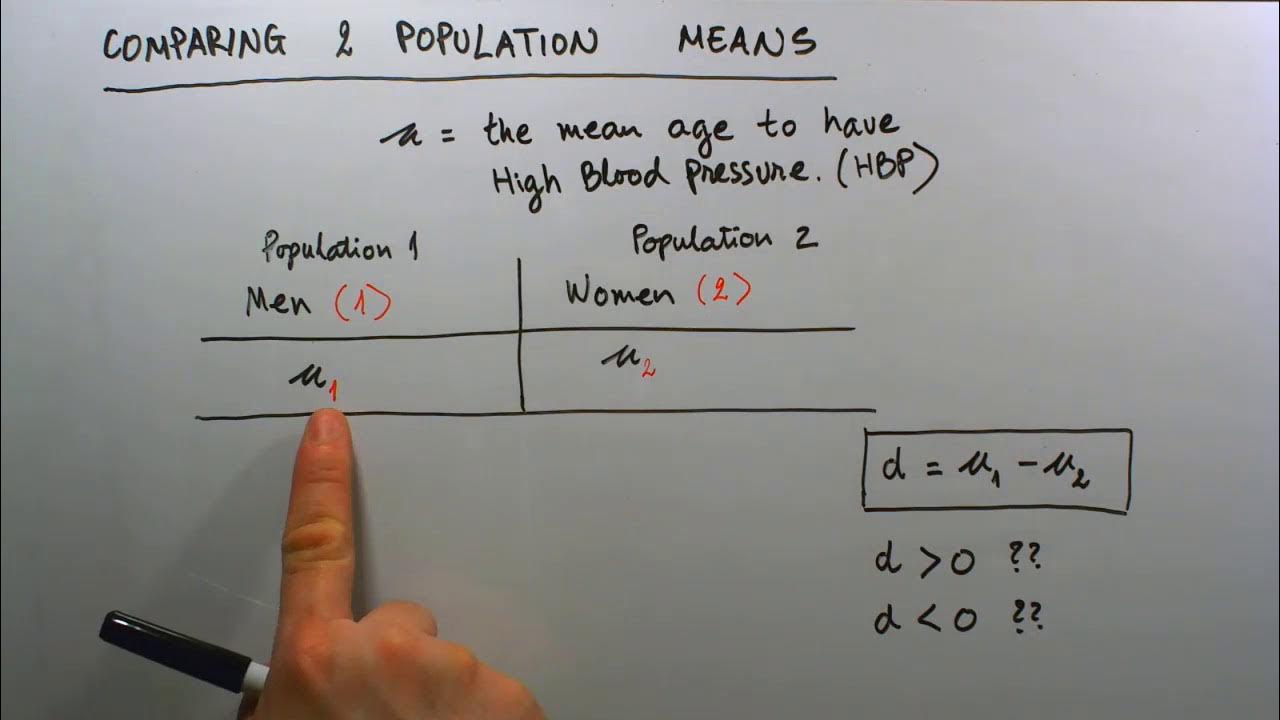 COMPARING 2 POPULATION MEANS
μ = the mean age to have
High Blood Pressure. (HBP)
Population 1 Population 2
Men (1) Women (2)
μ₁ μ₂
d = μ₁ - μ₂
d > 0 ??
d < 0 ??